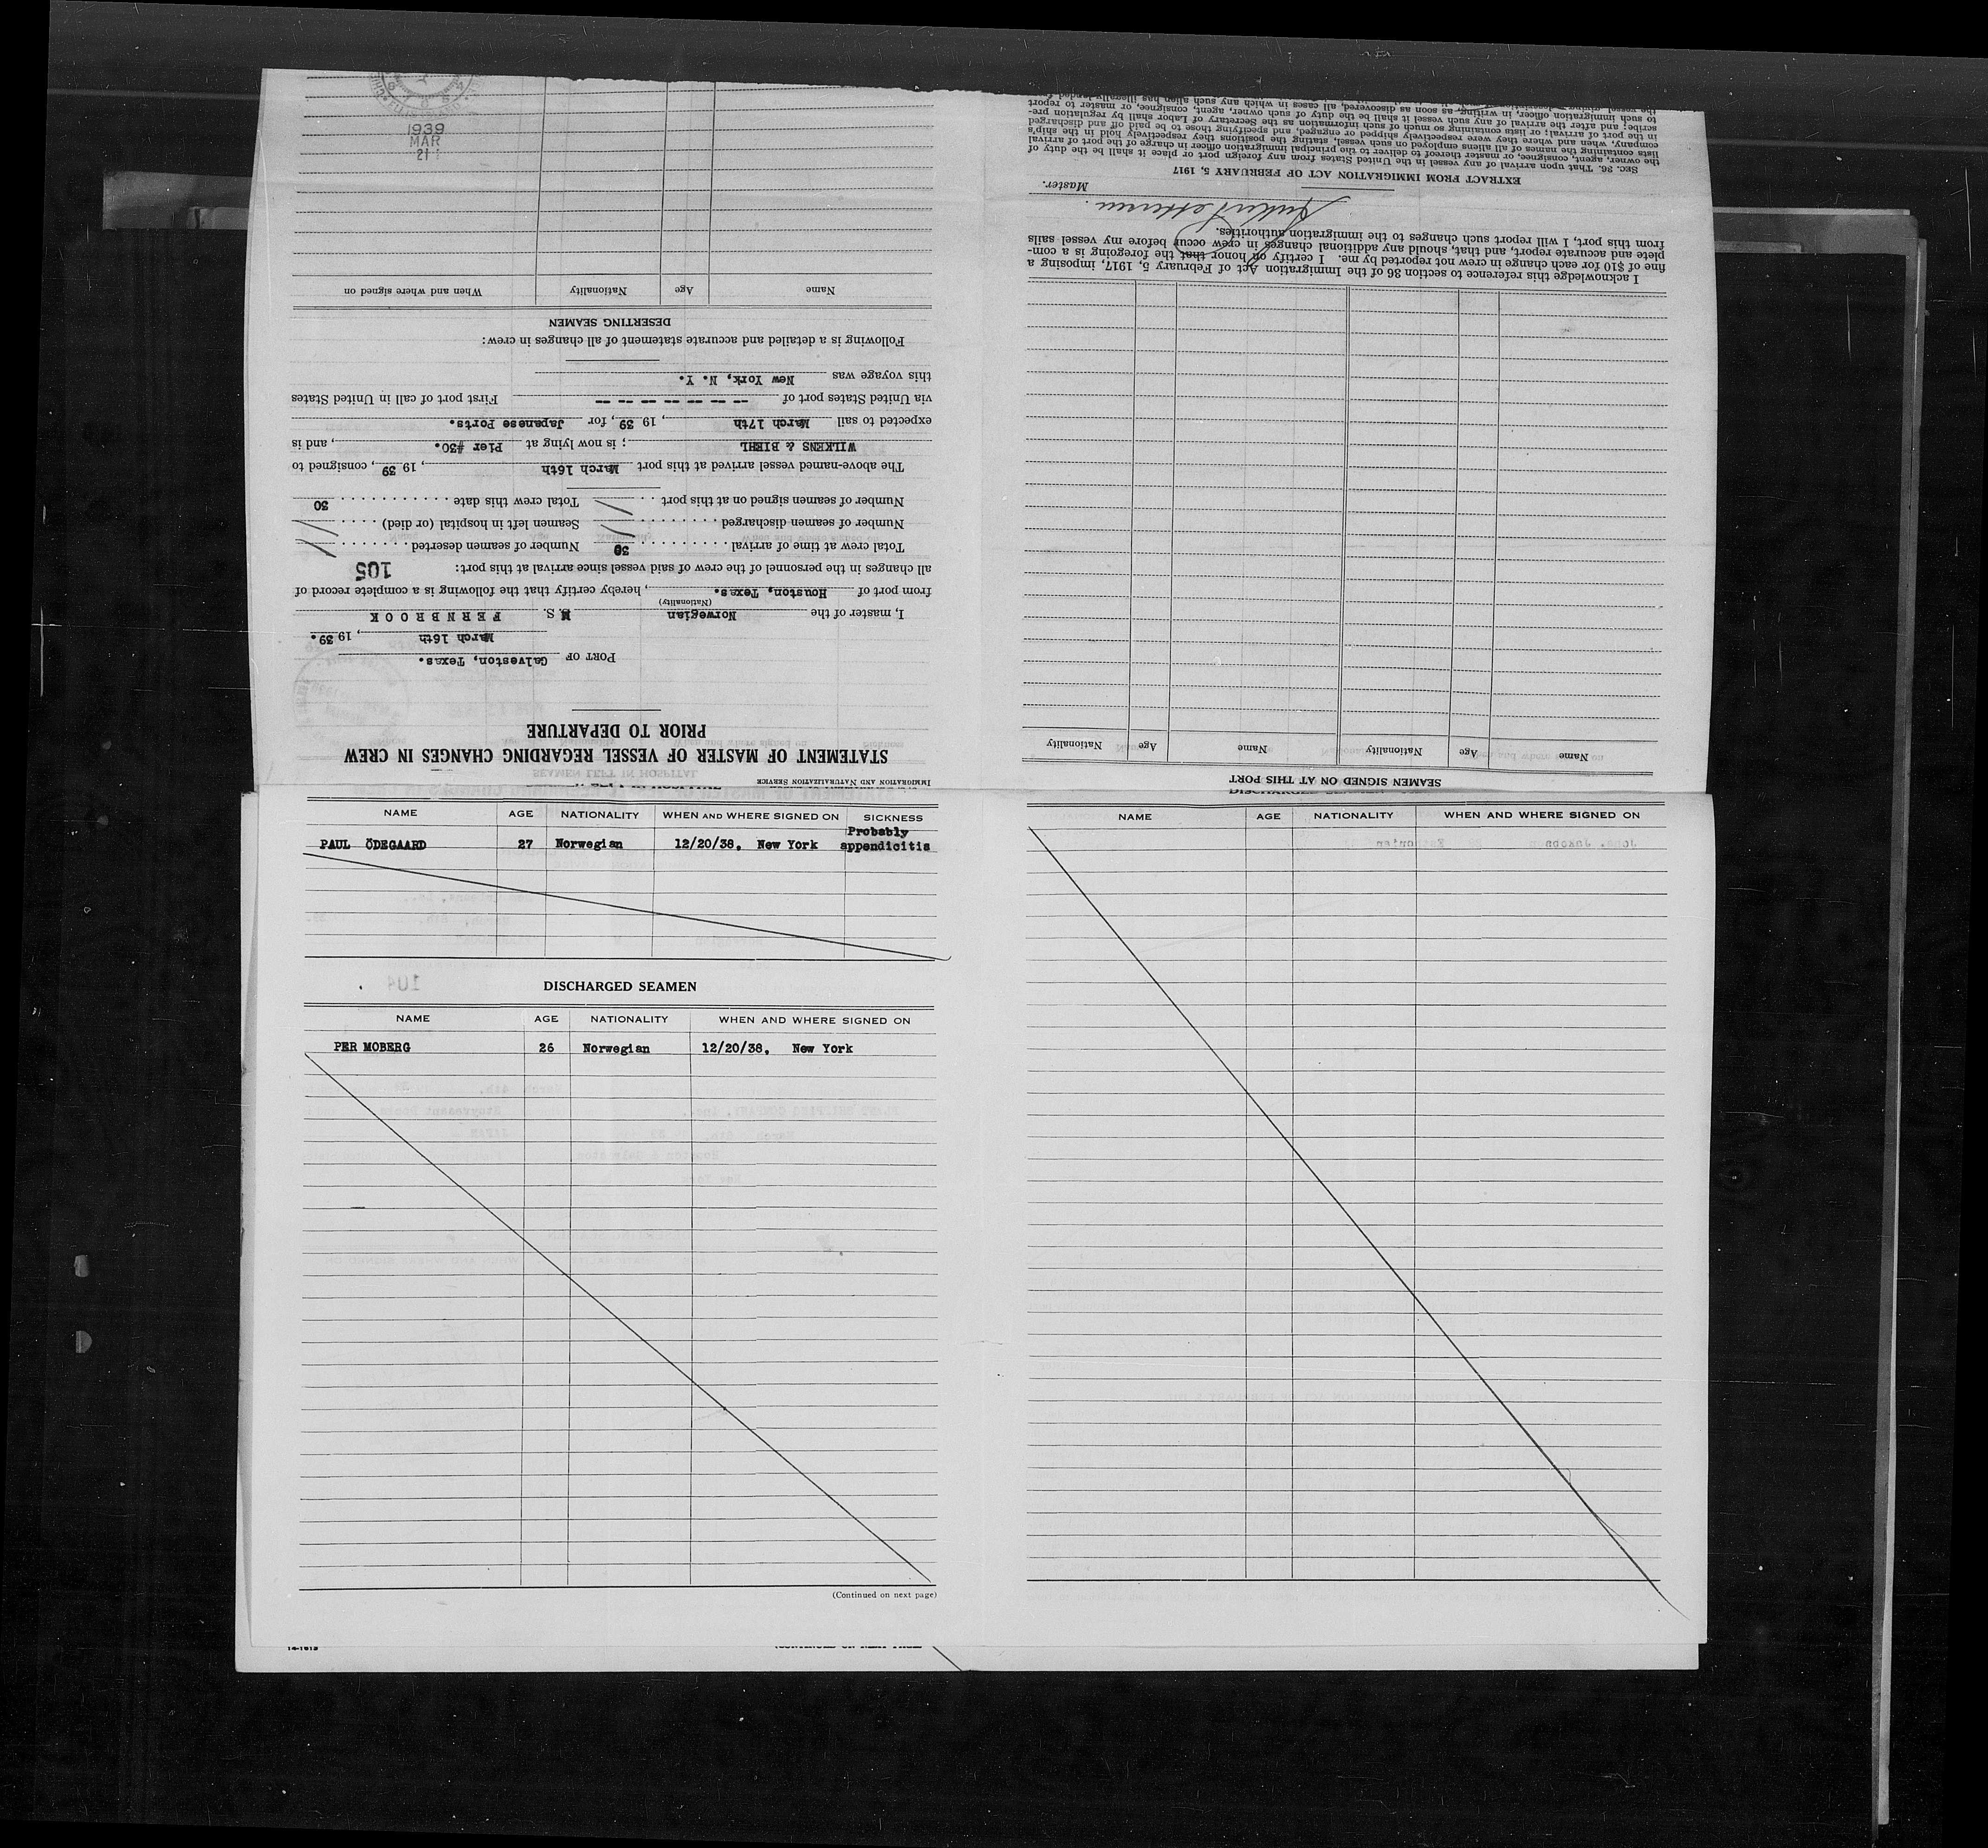 IMMIGRATION AND NATURALIZATION SERVICE
STATEMENT OF MASTER OF VESSEL REGARDING CHANGES IN CREW
PRIOR TO DEPARTURE
PORT OF Galveston, Texas.
March 16th, 19 39.
I, master of the Norwegian M S. FERNBROOK
(Nationality)
from port of Houston, Texas., hereby certify that the following is a complete record of
all changes in the personnel of the crew of said vessel since arrival at this port: 105
Total crew at time of arrival 30 Number of seamen deserted
Number of seamen discharged Seamen left in hospital (or died)
Number of seamen signed on at this port Total crew this date 30
The above-named vessel arrived at this port March 16th, 19 39, consigned to
WILKENS & BIEHL; is now lying at Pier #30., and is
expected to sail March 17th, 19 39, for Japanese Ports.
via United States port of -- -- -- -- -- -- -- First port of call in United States
this voyage was New York, N. Y.
Following is a detailed and accurate statement of all changes in crew:
DESERTING SEAMEN
Name Age Nationality When and where signed on
21
MAR
1939
SEAMEN SIGNED ON AT THIS PORT
Name Age Nationality Name Age Nationality
I acknowledge this reference to section 36 of the Immigration Act of February 5, 1917, imposing a
fine of $10 for each change in crew not reported by me. I certify on honor that the foregoing is a com-
plete and accurate report, and that, should any additional changes in crew occur before my vessel sails
from this port, I will report such changes to the immigration authorities.
Master.
EXTRACT FROM IMMIGRATION ACT OF FEBRUARY 5, 1917
SEC. 36. That upon arrival of any vessel in the United States from any foreign port or place it shall be the duty of
the owner, agent, consignee, or master thereof to deliver to the principal immigration officer in charge of the port of arrival
lists containing the names of all aliens employed on such vessel, stating the positions they respectively hold in the ship's
company, when and where they were respectively shipped or engaged, and specifying those to be paid off and discharged
in the port of arrival; or lists containing so much of such information as the Secretary of Labor shall by regulation pre-
scribe; and after the arrival of any such vessel it shall be the duty of such owner, agent, consignee, or master to report
to such immigration officer, in writing, as soon as discovered, all cases in which any such alien has illegally landed
NAME AGE NATIONALITY WHEN AND WHERE SIGNED ON SICKNESS
Probably
PAUL ÖDEGAARD 27 Norwegian 12/20/38. New York appendicitis
DISCHARGED SEAMEN
NAME AGE NATIONALITY WHEN AND WHERE SIGNED ON
PER MOBERG 26 Norwegian 12/20/38. New York
(Continued on next page)
14-1615
NAME AGE NATIONALITY WHEN AND WHERE SIGNED ON